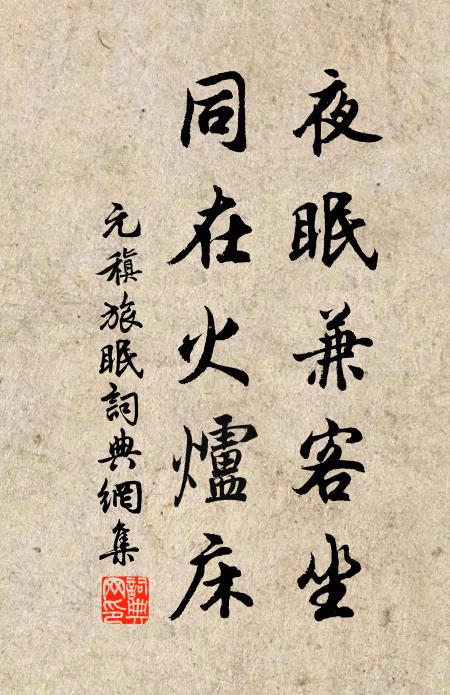 夜眠兼客坐
同在火爐床
元稹旅眠詞典網集
詞典網印